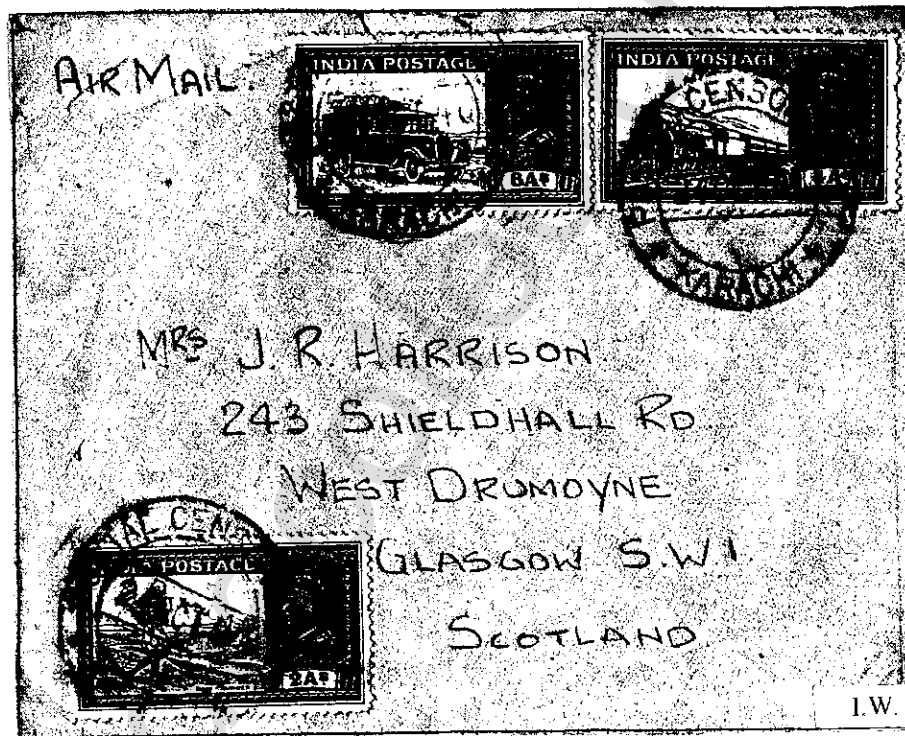 AIR MAIL.
INDIA POSTAGE
INDIA POSTAGE
CENSO
8As
KARACHI
MRS J. R. HARRISON
243 SHIELDHALL RD.
WEST DRUMOYNE
GLASGOW S.W.1.
SCOTLAND
POSTAGE
2As
I.W.